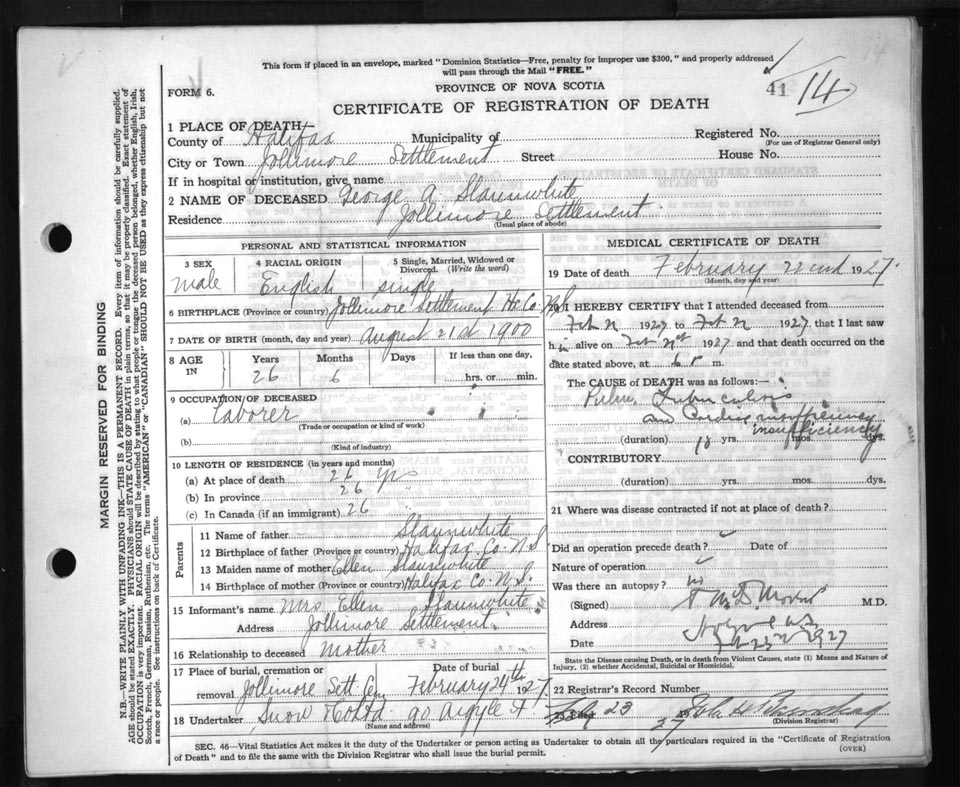 This form if placed in an envelope, marked "Dominion Statistics—Free, penalty for improper use $300," and properly addressed
will pass through the Mail "FREE."
FORM 6.
PROVINCE OF NOVA SCOTIA
41 14
CERTIFICATE OF REGISTRATION OF DEATH
1 PLACE OF DEATH—
County of Halifax Municipality of Registered No.
(For use of Registrar General only)
City or Town Jollimore Settlement Street House No.
If in hospital or institution, give name
2 NAME OF DECEASED George A. Slaunwhite
Residence Jollimore Settlement
(Usual place of abode)
PERSONAL AND STATISTICAL INFORMATION
3 SEX 4 RACIAL ORIGIN 5 Single, Married, Widowed or
Divorced. (Write the word)
male English single
6 BIRTHPLACE (Province or country) Jollimore Settlement Hx Co. N.S.
7 DATE OF BIRTH (month, day and year) August 21st 1900
8 AGE IN Years Months Days If less than one day,
26 6 hrs. or min.
9 OCCUPATION OF DECEASED
(a) Laborer
(Trade or occupation or kind of work)
(b)
(Kind of industry)
10 LENGTH OF RESIDENCE (in years and months)
(a) At place of death 26 yrs
(b) In province 26 "
(c) In Canada (if an immigrant) 26 "
Parents
11 Name of father Slaunwhite
12 Birthplace of father (Province or country) Halifax Co. N.S.
13 Maiden name of mother Ellen Slaunwhite
14 Birthplace of mother (Province or country) Halifax Co. N.S.
15 Informant's name Mrs Ellen Slaunwhite
Address Jollimore Settlement
16 Relationship to deceased mother
17 Place of burial, cremation or Date of burial
removal Jollimore Sett Cem February 24th 1927
18 Undertaker Snow & Co Ltd 90 Argyle St
(Name and address)
MEDICAL CERTIFICATE OF DEATH
19 Date of death February 22nd 1927
(Month, day and year)
20 I HEREBY CERTIFY that I attended deceased from
Feb 1927 to Feb 1927 that I last saw
him alive on Feb 21st 1927 and that death occurred on the
date stated above, at m.
The CAUSE of DEATH was as follows:—
Pulm. Tuberculosis
and Cardiac
insufficiency
(duration) yrs. mos. dys.
CONTRIBUTORY
(duration) yrs. mos. dys.
21 Where was disease contracted if not at place of death?
Did an operation precede death? Date of
Nature of operation
Was there an autopsy? no
(Signed) M.D.
Address
Date Feb 23 1927
State the Disease causing Death, or in death from Violent Causes, state (1) Means and Nature of
Injury, (2) whether Accidental, Suicidal or Homicidal.
22 Registrar's Record Number
Feb 23
27
(Division Registrar)
SEC. 46—Vital Statistics Act makes it the duty of the Undertaker or person acting as Undertaker to obtain all the particulars required in the "Certificate of Registration
of Death" and to file the same with the Division Registrar who shall issue the burial permit.
(OVER)
MARGIN RESERVED FOR BINDING
N.B.—WRITE PLAINLY WITH UNFADING INK—THIS IS A PERMANENT RECORD. Every item of information should be carefully supplied.
AGE should be stated EXACTLY. PHYSICIANS should STATE CAUSE OF DEATH in plain terms, so that it may be properly classified. Exact statement of
OCCUPATION is very important. RACIAL ORIGIN will be described by stating to what people or tongue the deceased person belonged, whether English, Irish,
Scotch, French, German, Russian, Ruthenian, etc. The terms "AMERICAN" or "CANADIAN" SHOULD NOT BE USED as they express citizenship but not
a race or people. See instructions on back of Certificate.